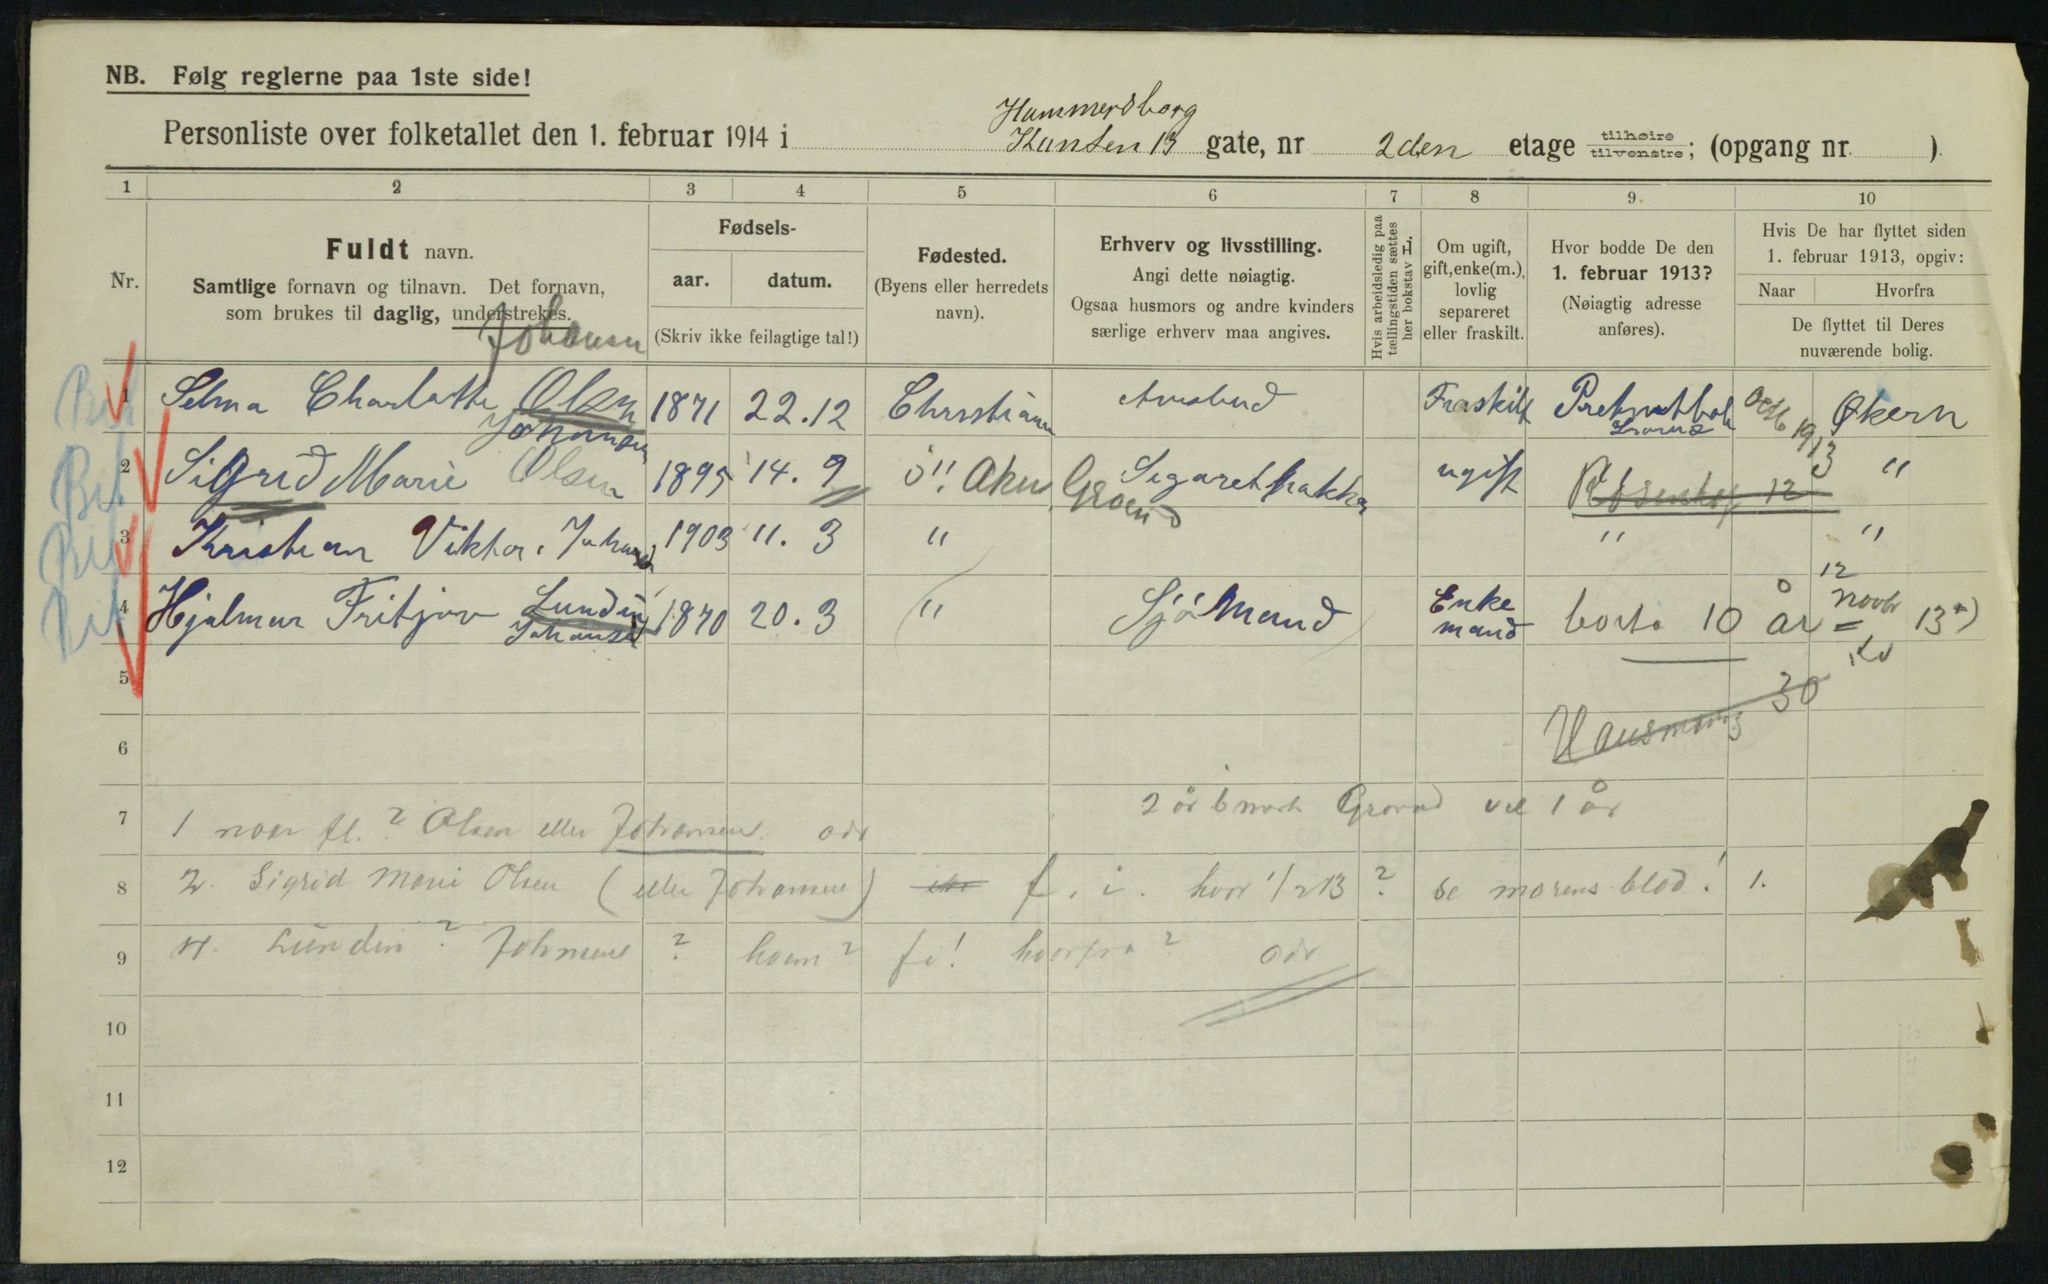 NB. Følg reglerne paa 1ste side!
Hammersborg
Personliste over folketallet den 1. februar 1914 i Kanten 13 gate, nr 2den etage tilhøire tilvenstre; (opgang nr. ).
1 2 3 4 5 6 7 8 9 10
Nr.
Fuldt navn.
Samtlige fornavn og tilnavn. Det fornavn,
som brukes til daglig, understrekes.
Fødsels-
aar. datum.
(Skriv ikke feilagtige tal!)
Fødested.
(Byens eller herredets
navn).
Erhverv og livsstilling.
Angi dette nøiagtig.
Ogsaa husmors og andre kvinders
særlige erhverv maa angives.
Hvis arbeidsledig paa
tællingstiden sættes
her bokstav L.
Om ugift,
gift, enke(m.),
lovlig
separeret
eller fraskilt.
Hvor bodde De den
1. februar 1913?
(Nøiagtig adresse
anføres).
Hvis De har flyttet siden
1. februar 1913, opgiv:
Naar Hvorfra
De flyttet til Deres
nuværende bolig.
Johansen
1 Selma Charlotte Olsen 1871 22.12 Christiania Avisbud Fraskilt 1913 Økern
Johansen
2 Sigrid Marie Olsen 1895 14.9 " Aker Sigaretpakker ugift Rosenhof 12 "
Grorud
3 Kristian Viktor Johansen 1903 11.3 " " "
4 Hjalmar Fritjov Lundin 1870 20.3 " Sjømand Enke mand borte 10 år 12 novbr 13
Johansen
5
Hausmansg 30
6
2 år 6 mndr Grorud ved 1 år
7 1 naar fl.? Olsen eller Johansen
8 2. Sigrid Marie Olsen (eller Johansen) f. i. hvor 1/2 13? se morens blad! 1.
9 4. Lundin? Johansen? hvem? fi! hvorfra?
10
11
12